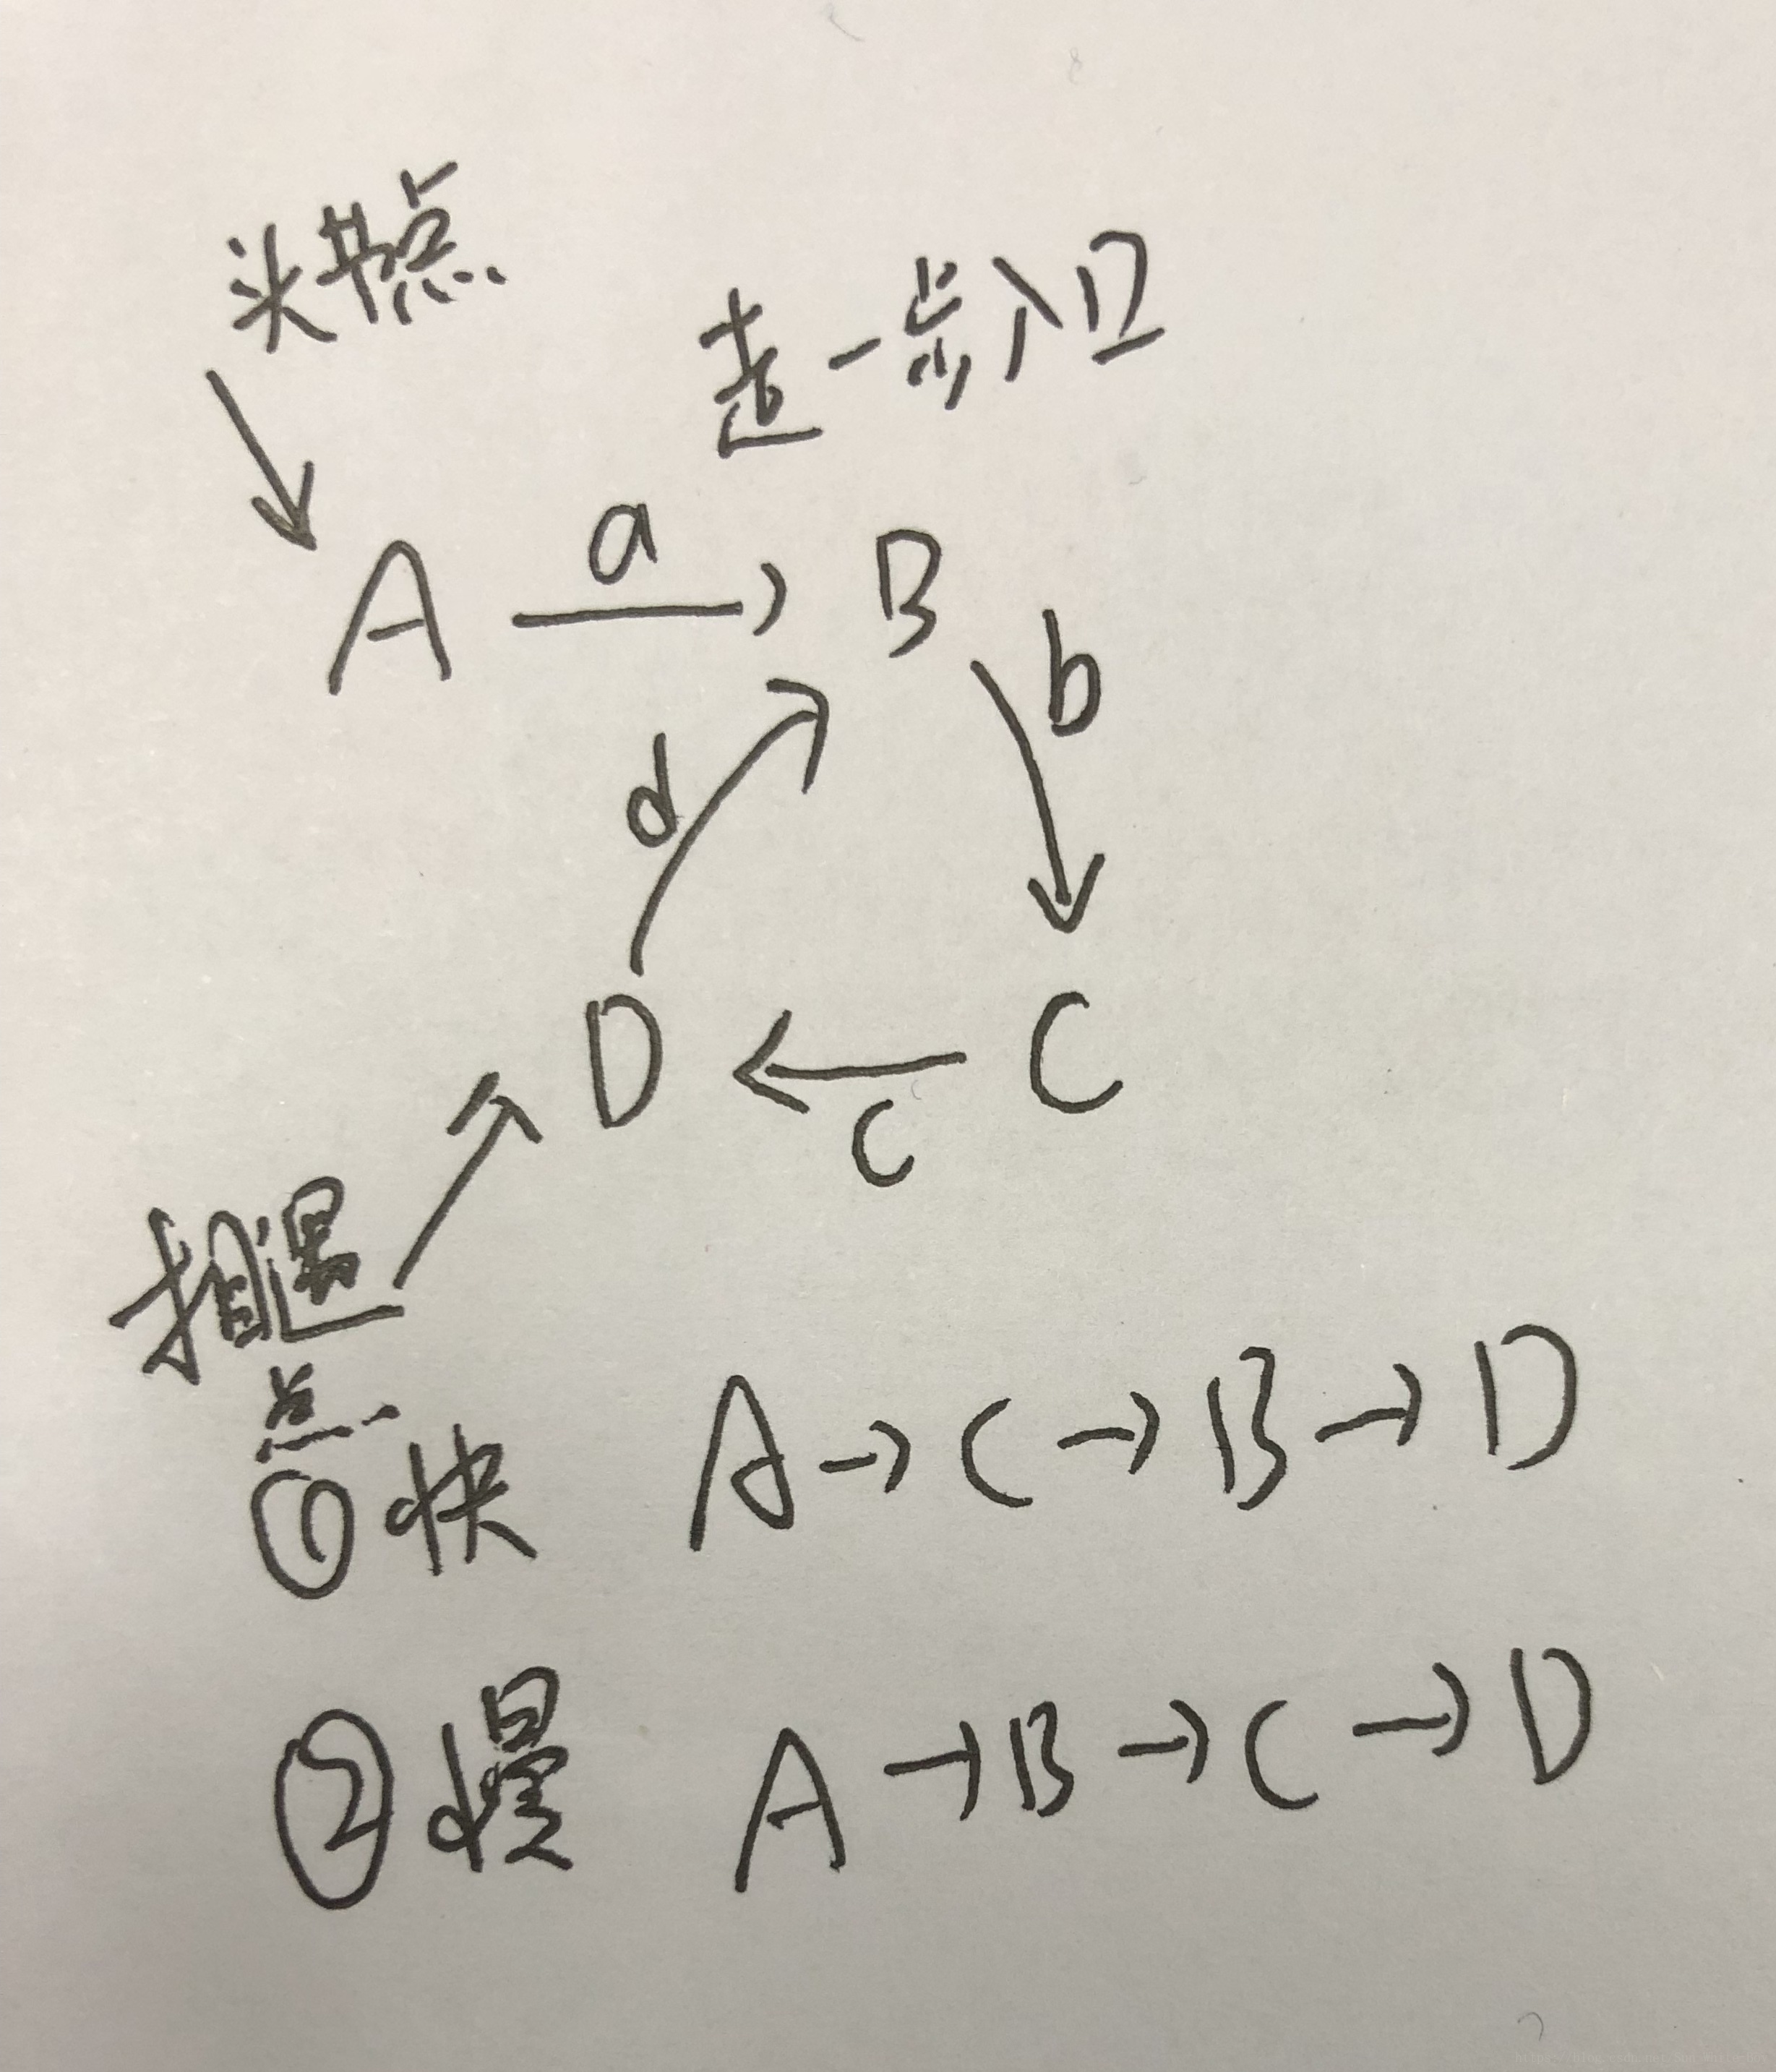 头节点
走一步入口
A a → B
b
d
D ← C
c
相遇
点
① 快 A → C → B → D
② 慢 A → B → C → D